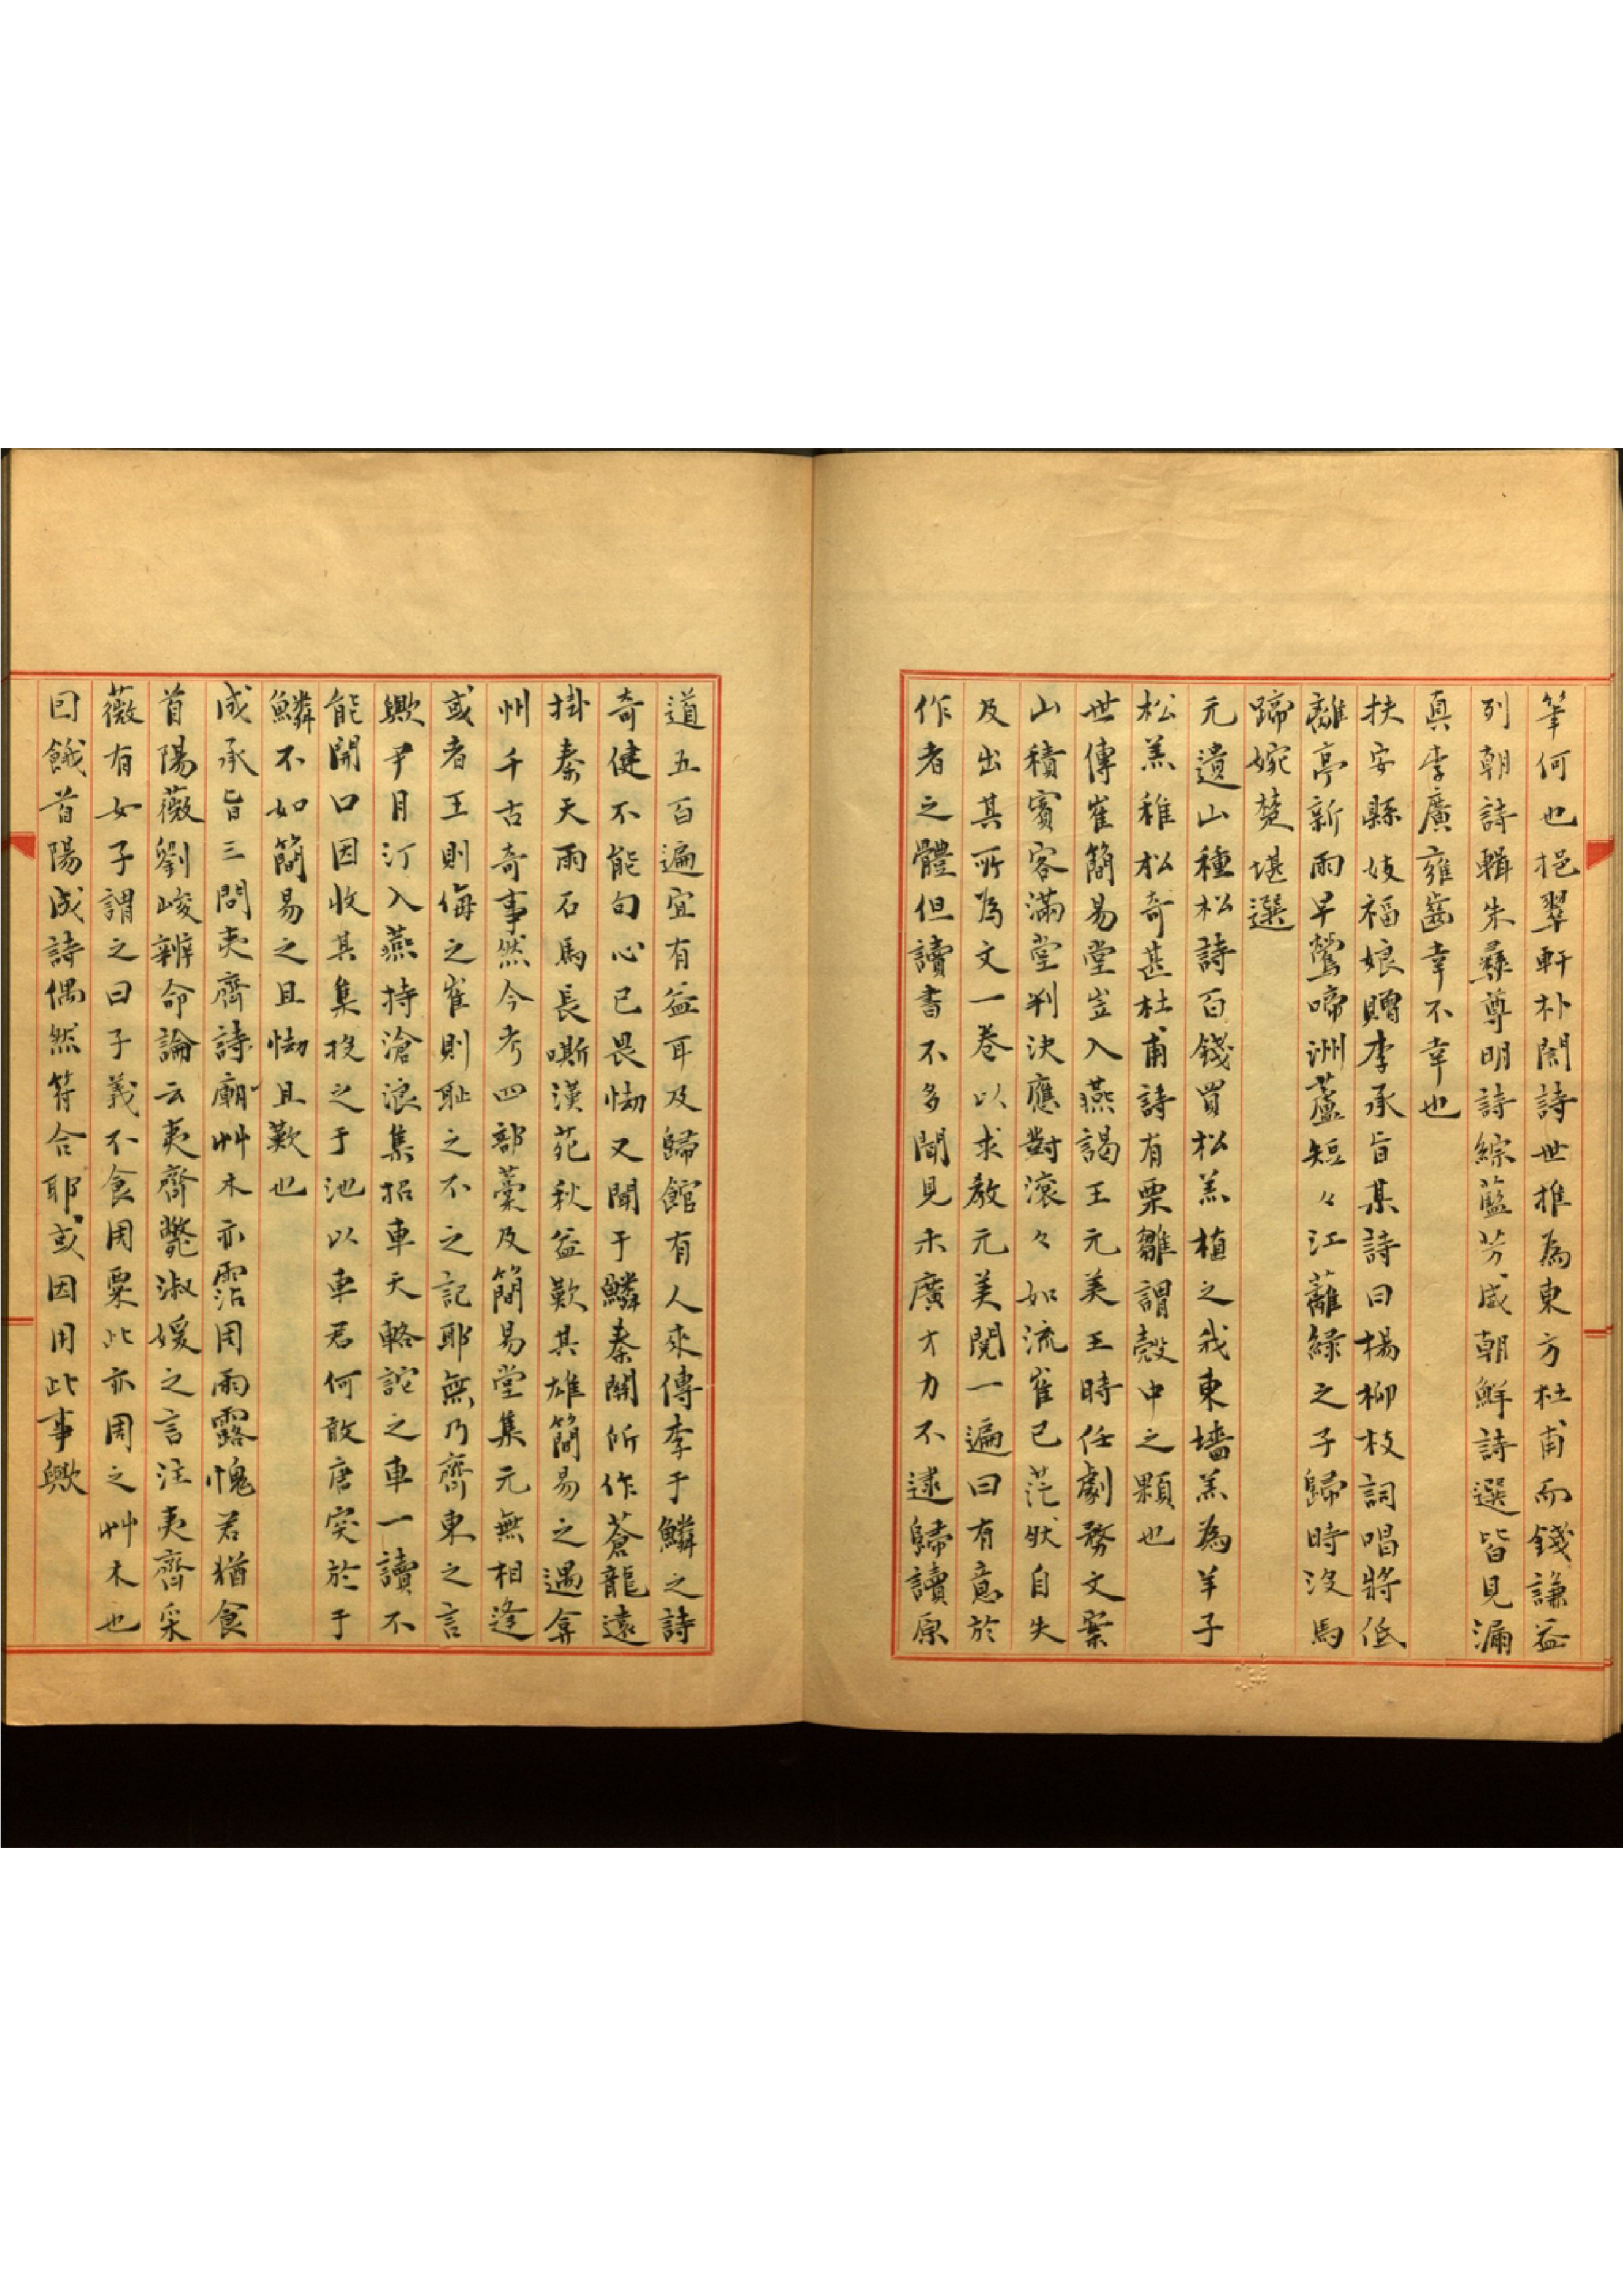 筆何也挹翠軒朴誾詩世推為東方杜甫而錢謙益
列朝詩輯朱彛尊明詩綜藍芳威朝鮮詩選皆見漏
真李廣雍齒幸不幸也
扶安縣妓福娘贈李承旨某詩曰楊柳枝詞唱將低
離亭新雨早鶯啼洲蘆短々江蘺綠之子歸時沒馬
蹄婉楚堪選
元遺山種松詩百錢買松羔植之我東墻羔為羊子
松羔稚松奇甚杜甫詩有栗雛謂殼中之顆也
世傳崔簡易堂岦入燕謁王元美王時任劇務文案
山積賓客滿堂判決應對滾々如流崔已茫然自失
及出其所為文一卷以求教元美閱一遍曰有意於
作者之體但讀書不多聞見未廣才力不逮歸讀原
道五百遍宜有益耳及歸館有人來傳李于鱗之詩
奇健不能句心已畏㤼又聞于鱗秦關所作蒼龍遠
掛秦天雨石馬長嘶漢苑秋益歎其雄簡易之遇弇
州千古奇事然今考四部藁及簡易堂集元無相逢
或者王則侮之崔則耻之不之記耶無乃齊東之言
歟尹月汀入燕持滄浪集招車天輅詑之車一讀不
能開口因收其集投之于池以車君何敢唐突於于
鱗不如簡易之且㤼且歎也
成承旨三問夷齊詩廟艸木亦霑周雨露愧君猶食
首陽薇劉峻辨命論云夷齊斃淑媛之言注夷齊采
薇有女子謂之曰子義不食周粟此亦周之艸木也
因餓首陽成詩偶然符合耶或因用此事歟